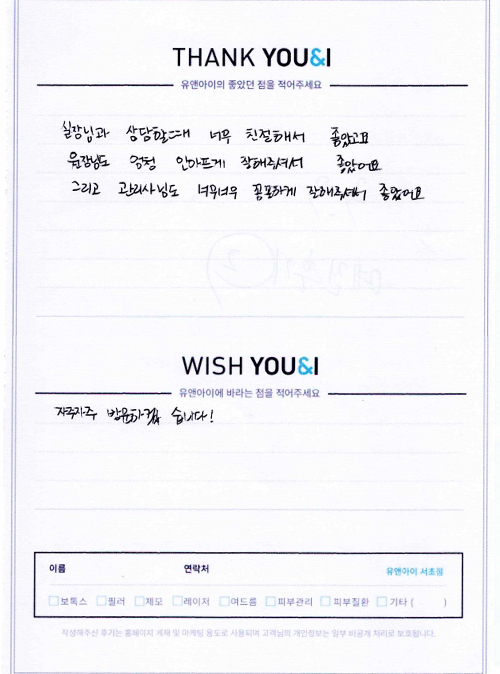 THANK YOU&I
유앤아이의 좋았던 점을 적어주세요
실장님과 상담할때 너무 친절해서 좋았고요
원장님도 엄청 안아프게 잘해주셔서 좋았어요
그리고 관리사님도 너무너무 꼼꼼하게 잘해주셔서 좋았어요
WISH YOU&I
유앤아이에 바라는 점을 적어주세요
자주자주 방문하겠습니다!
이름 연락처 유앤아이 서초점
보톡스 필러 제모 레이저 여드름 피부관리 피부질환 기타 ( )
작성해주신 후기는 홈페이지 게재 및 마케팅 용도로 사용되며 고객님의 개인정보는 일부 비공개 처리로 보호됩니다.